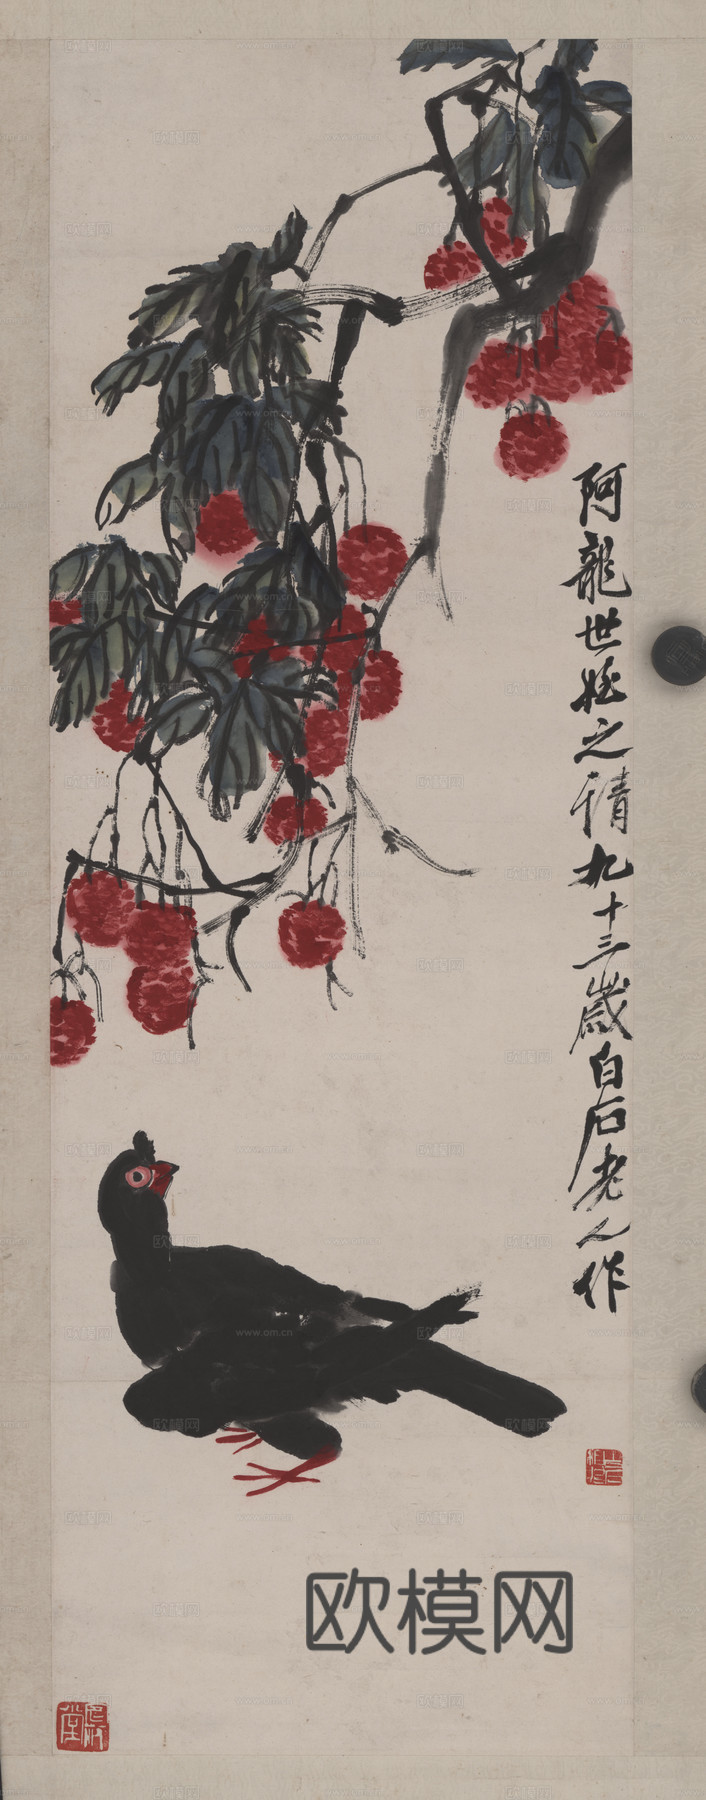 阿龍世姪之請九十三歲白石老人作
欧模网
www.om.cn